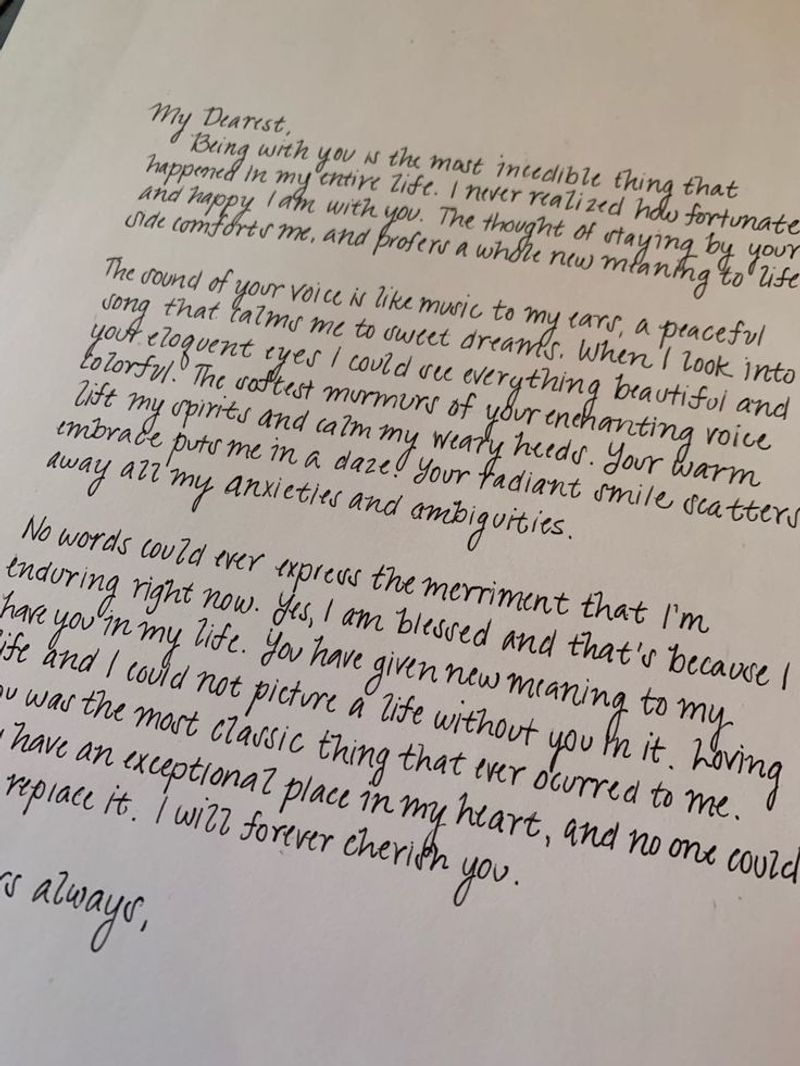 My Dearest,
Being with you is the most incedible thing that
happened in my entire life. I never realized how fortunate
and happy I am with you. The thought of staying by your
side comforts me, and profers a whole new meaning to life
The sound of your voice is like music to my ears, a peaceful
song that calms me to sweet dreams. When I look into
your eloquent eyes I could see everything beautiful and
colorful. The softest murmurs of your enchanting voice
lift my spirits and calm my weary heeds. Your warm
embrace puts me in a daze! Your radiant smile scatters
away all my anxieties and ambiguities.
No words could ever express the merriment that I'm
enduring right now. Yes, I am blessed and that's because I
have you in my life. You have given new meaning to my
ife and I could not picture a life without you in it. Loving
ou was the most classic thing that ever ocurred to me.
have an exceptional place in my heart, and no one could
replace it. I will forever cherish you.
rs always,